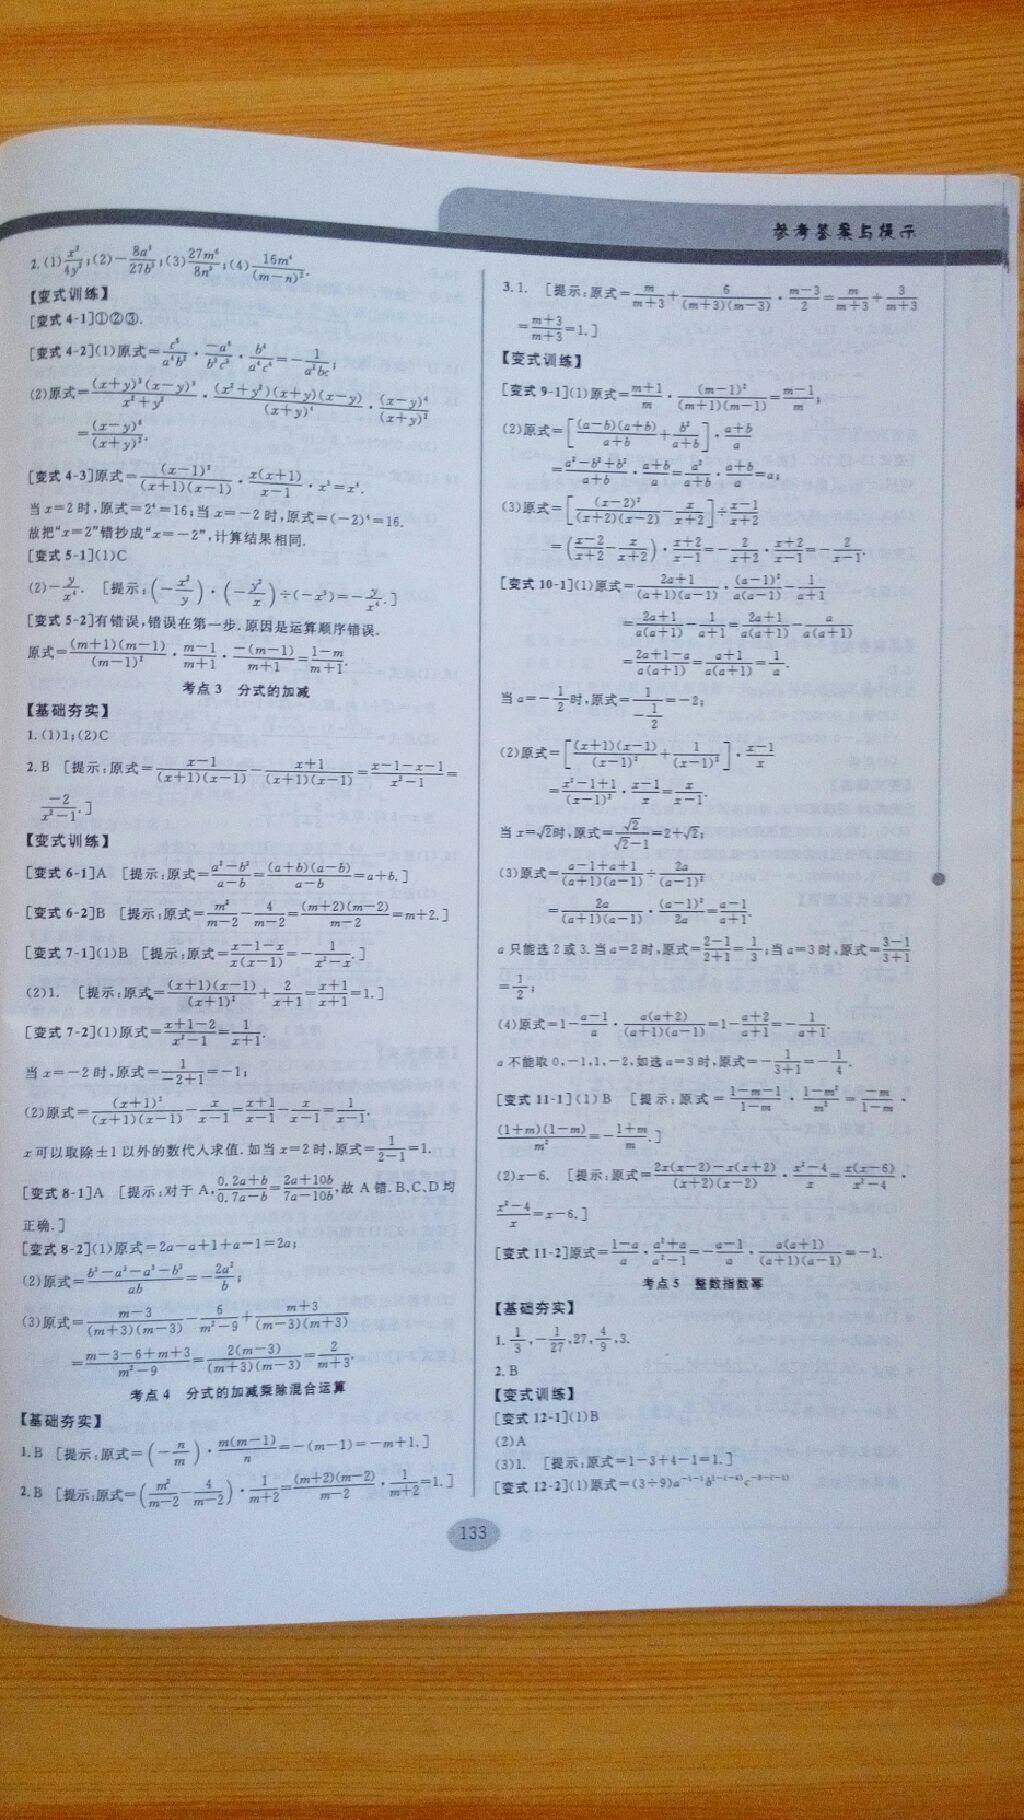 参考答案与提示
2.(1)x²/4y²;(2)-8a³/27b³;(3)27m⁶/8n³;(4)16m⁴/(m-n)².
【变式训练】
[变式 4-1]①②③.
(2)原式=(x+y)³(x-y)³/(x²+y²)·(x²+y²)(x+y)(x-y)/(x+y)⁴·(x-y)⁴/(x+y)²
[变式 4-3]原式=(x-1)²/(x+1)(x-1)·x(x+1)/(x-1)·x³=x⁴.
当 x=2 时,原式=2⁴=16;当 x=-2 时,原式=(-2)⁴=16.
故把“x=2”错抄成“x=-2”,计算结果相同.
[变式 5-1](1)C
[变式 5-2]有错误,错误在第一步.原因是运算顺序错误.
原式=(m+1)(m-1)/(m-1)²·(m-1)/(m+1)·-(m-1)/(m+1)=(1-m)/(m+1).
考点 3 分式的加减
【基础夯实】
1.(1)1;(2)C
2.B [提示:原式=(x-1)/(x+1)(x-1)-(x+1)/(x+1)(x-1)=(x-1-x-1)/(x²-1)=
-2/(x²-1).]
【变式训练】
[变式 6-1]A [提示:原式=(a²-b²)/(a-b)=(a+b)(a-b)/(a-b)=a+b.]
[变式 6-2]B [提示:原式=m²/(m-2)-4/(m-2)=(m+2)(m-2)/(m-2)=m+2.]
[变式 7-1](1)B [提示:原式=(x-1-x)/x(x-1)=-1/(x²-x).]
(2)1. [提示:原式=(x+1)(x-1)/(x+1)²+2/(x+1)=(x+1)/(x+1)=1.]
[变式 7-2](1)原式=(x+1-2)/(x²-1)=1/(x+1).
当 x=-2 时,原式=1/(-2+1)=-1;
(2)原式=(x+1)²/(x+1)(x-1)-x/(x-1)=(x+1)/(x-1)-x/(x-1)=1/(x-1).
x 可以取除±1 以外的数代入求值.如当 x=2 时,原式=1/(2-1)=1.
[变式 8-1]A [提示:对于 A,(0.2a+b)/(0.7a-b)=(2a+10b)/(7a-10b),故 A 错.B、C、D 均
正确.]
[变式 8-2](1)原式=2a-a+1+a-1=2a;
(2)原式=(b³-a³-a³-b³)/ab=-2a²/b;
(3)原式=(m-3)/(m+3)(m-3)-6/(m²-9)+(m+3)/(m-3)(m+3)
=(m-3-6+m+3)/(m²-9)=2(m-3)/(m+3)(m-3)=2/(m+3).
考点 4 分式的加减乘除混合运算
【基础夯实】
1.B [提示:原式=(-n/m)·m(m-1)/n=-(m-1)=-m+1.]
2.B [提示:原式=(m²/(m-2)-4/(m-2))·1/(m+2)=(m+2)(m-2)/(m-2)·1/(m+2)=1.]
3.1. [提示:原式=m/(m+3)+6/(m+3)(m-3)·(m-3)/2=m/(m+3)+3/(m+3)
=(m+3)/(m+3)=1.]
【变式训练】
[变式 9-1](1)原式=(m+1)/m·(m-1)²/(m+1)(m-1)=(m-1)/m;
(2)原式=[(a-b)(a+b)/(a+b)+b²/(a+b)]·(a+b)/a
=(a²-b²+b²)/(a+b)·(a+b)/a=a²/(a+b)·(a+b)/a=a;
(3)原式=[(x-2)²/(x+2)(x-2)-x/(x+2)]÷(x-1)/(x+2)
=((x-2)/(x+2)-x/(x+2))·(x+2)/(x-1)=-2/(x+2)·(x+2)/(x-1)=-2/(x-1).
[变式 10-1](1)原式=(2a+1)/(a+1)(a-1)·(a-1)²/a(a-1)-1/(a+1)
=(2a+1)/a(a+1)-1/(a+1)=(2a+1)/a(a+1)-a/a(a+1)
=(2a+1-a)/a(a+1)=(a+1)/a(a+1)=1/a.
当 a=-1/2时,原式=1/(-1/2)=-2;
(2)原式=[(x+1)(x-1)/(x-1)²+1/(x-1)²]·(x-1)/x
=(x²-1+1)/(x-1)²·(x-1)/x=x/(x-1).
当 x=√2时,原式=√2/(√2-1)=2+√2;
(3)原式=(a-1+a+1)/(a+1)(a-1)÷2a/(a-1)²
=2a/(a+1)(a-1)·(a-1)²/2a=(a-1)/(a+1).
a 只能选 2 或 3.当 a=2 时,原式=(2-1)/(2+1)=1/3;当 a=3 时,原式=(3-1)/(3+1)
=1/2;
(4)原式=1-(a-1)/a·a(a+2)/(a+1)(a-1)=1-(a+2)/(a+1)=-1/(a+1).
a 不能取 0,-1,1,-2,如选 a=3 时,原式=-1/(3+1)=-1/4.
[变式 11-1](1)B [提示:原式=(1-m-1)/(1-m)·(1-m²)/m²=-m/(1-m)·
(1+m)(1-m)/m²=-(1+m)/m.]
(2)x-6. [提示:原式=(2x(x-2)-x(x+2))/(x+2)(x-2)·(x²-4)/x=x(x-6)/(x²-4)·
(x²-4)/x=x-6.]
[变式 11-2]原式=(1-a)/a·(a²+a)/(a²-1)=-(a-1)/a·a(a+1)/(a+1)(a-1)=-1.
考点 5 整数指数幂
【基础夯实】
1.1/3,-1/27,27,4/9,3.
2.B
【变式训练】
[变式 12-1](1)B
(2)A
(3)1. [提示:原式=1-3+4-1=1.]
133